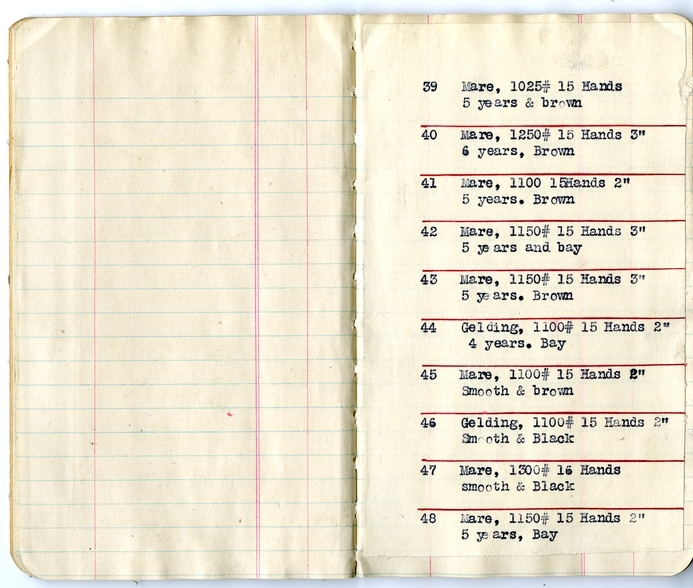 39 Mare, 1025# 15 Hands
5 years & brown
40 Mare, 1250# 15 Hands 3"
6 years, Brown
41 Mare, 1100 15Hands 2"
5 years. Brown
42 Mare, 1150# 15 Hands 3"
5 years and bay
43 Mare, 1150# 15 Hands 3"
5 years. Brown
44 Gelding, 1100# 15 Hands 2"
4 years. Bay
45 Mare, 1100# 15 Hands 2"
Smooth & brown
46 Gelding, 1100# 15 Hands 2"
Smooth & Black
47 Mare, 1300# 16 Hands
smooth & Black
48 Mare, 1150# 15 Hands 2"
5 years, Bay